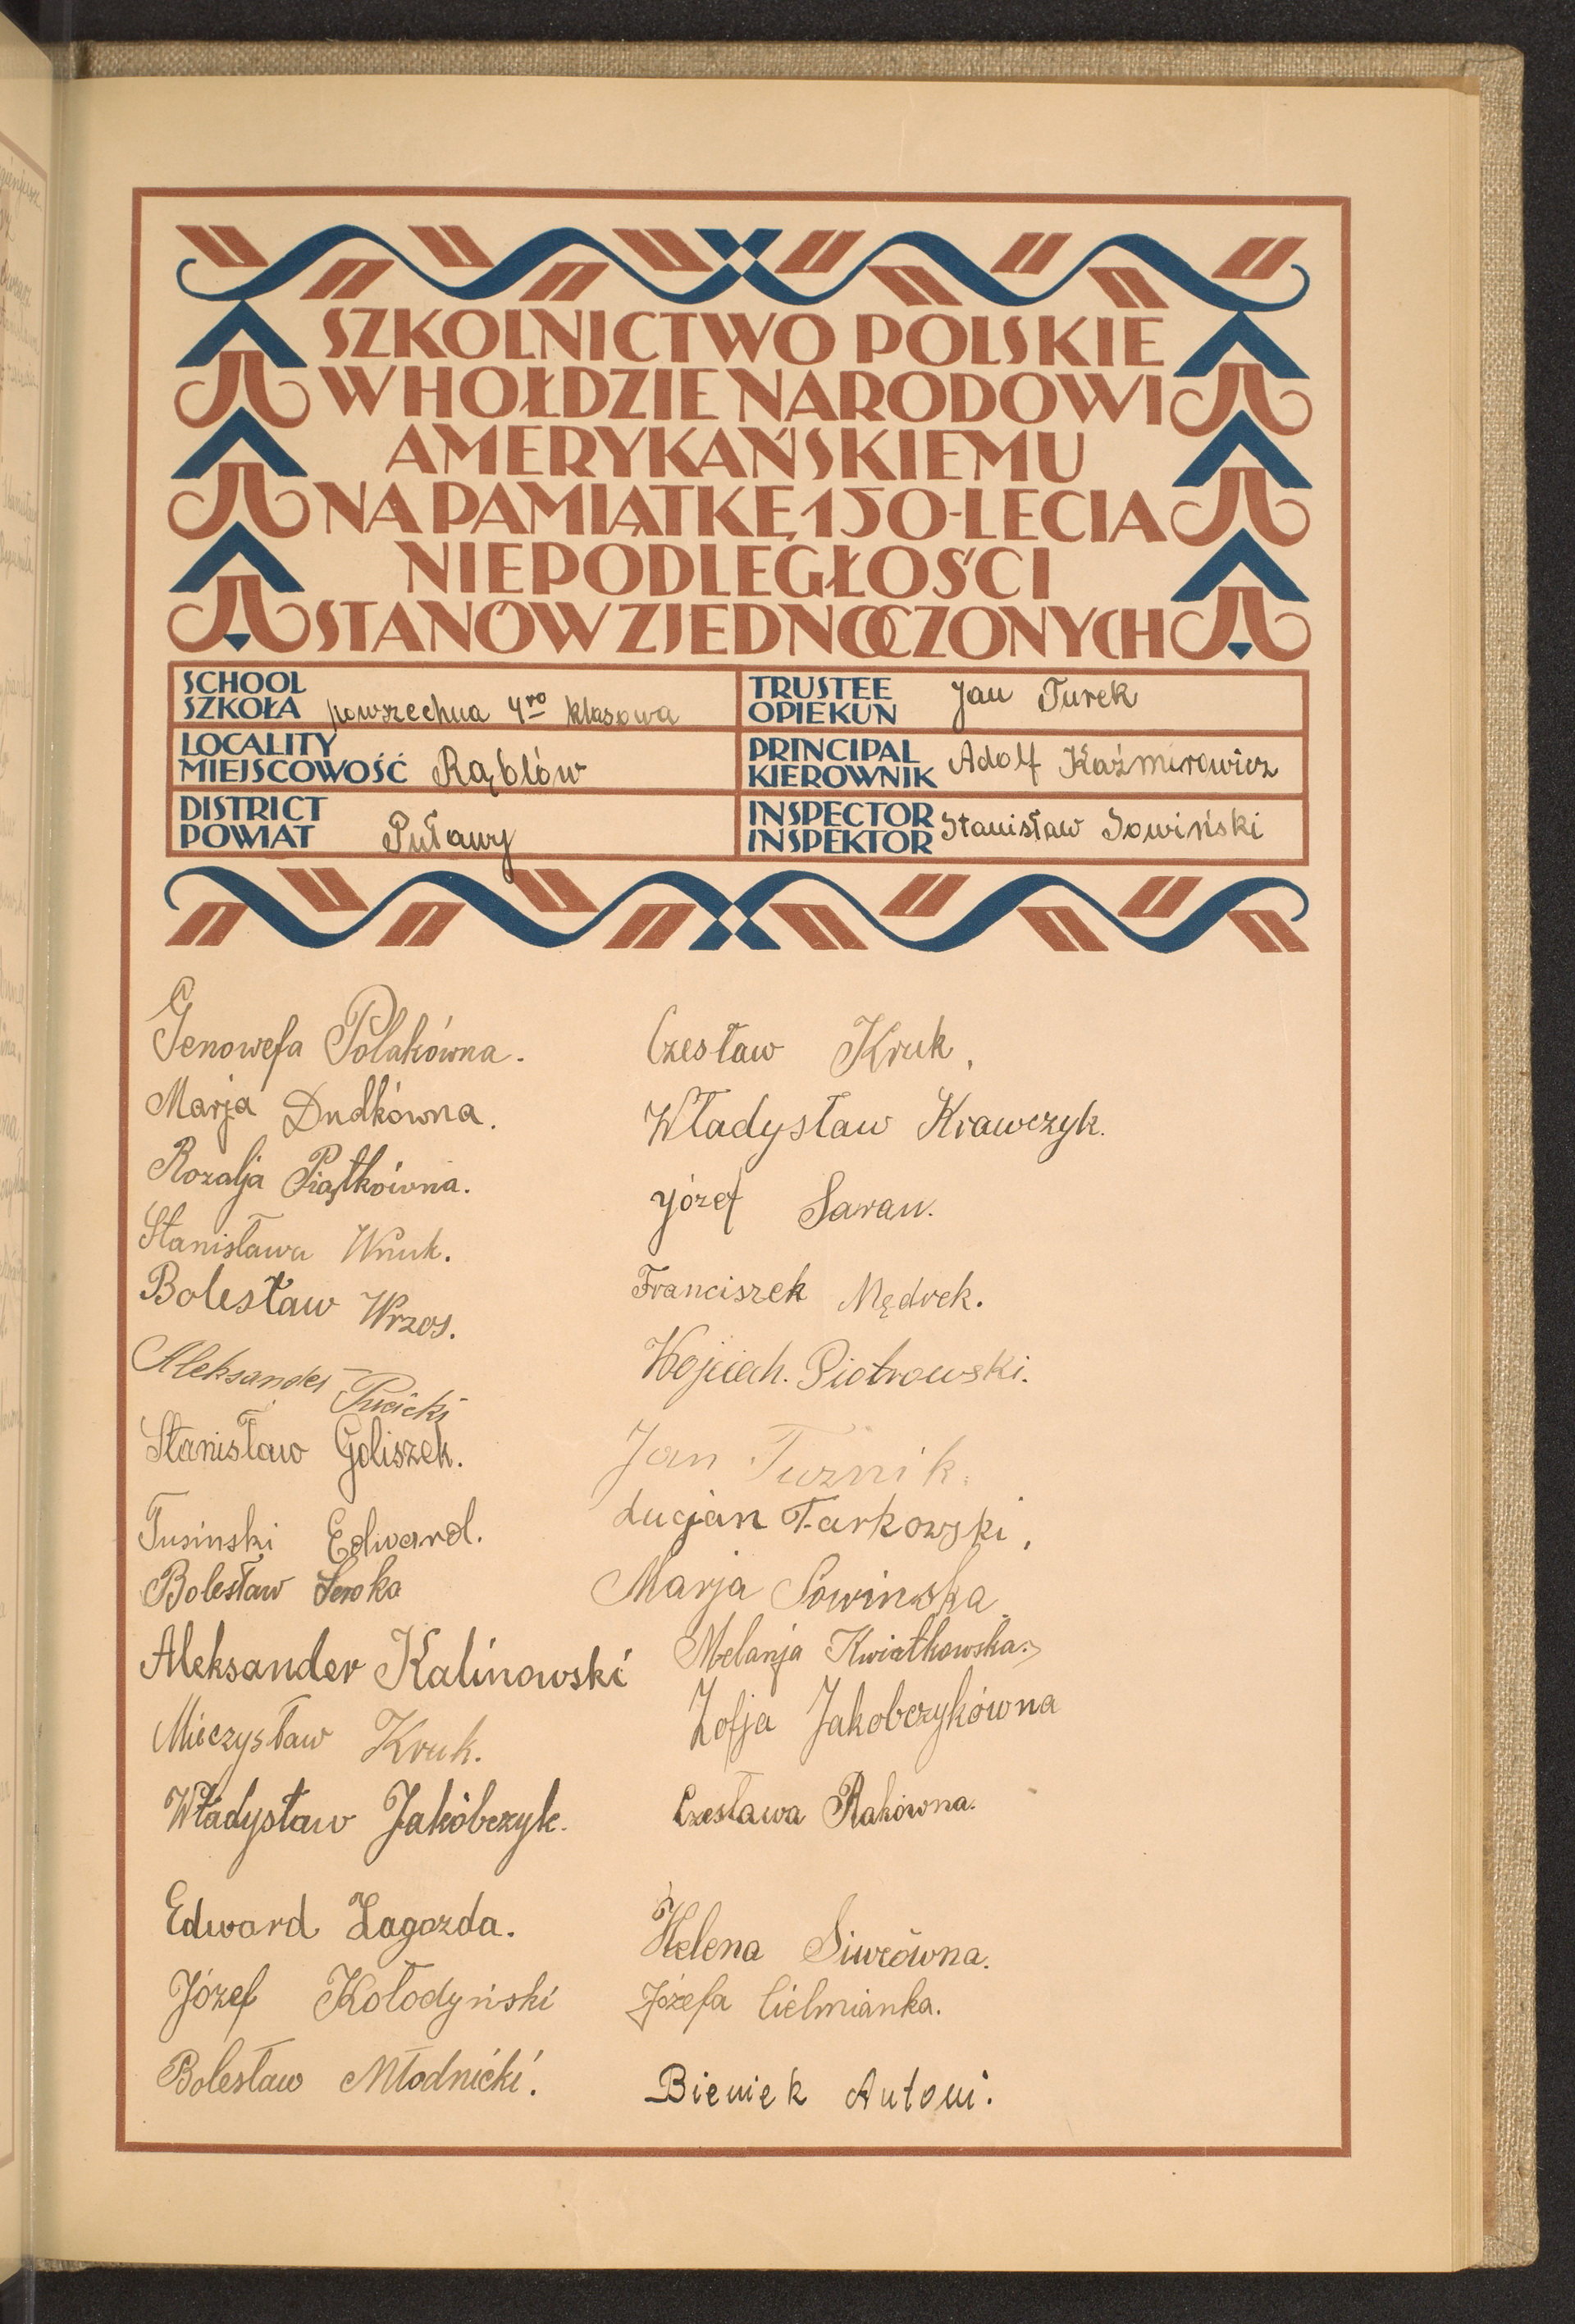 SZKOLNICTWO POLSKIE
W HOŁDZIE NARODOWI
AMERYKAŃSKIEMU
NA PAMIĄTKĘ 150-LECIA
NIEPODLEGŁOŚCI
STANÓW ZJEDNOCZONYCH
SCHOOL
SZKOŁA powszechna 4ro klasowa
TRUSTEE
OPIEKUN Jan Turek
LOCALITY
MIEJSCOWOŚĆ Rąblów
PRINCIPAL
KIEROWNIK Adolf Kaźmirowicz
DISTRICT
POWIAT Puławy
INSPECTOR
INSPEKTOR Stanisław Sowiński
Genowefa Polakówna.
Marja Dudkówna.
Rozalja Piątkówna.
Stanisława Wnuk.
Bolesław Wrzos.
Aleksander
Stanisław Goliszek.
Tusinski Edward.
Bolesław Seroka
Aleksander Kalinowski
Mieczysław Kruk.
Władysław Jakóbczyk.
Edward Łagozda.
Józef Kołodyński
Bolesław Młodnicki.
Czesław Kruk.
Władysław Krawczyk.
Józef Saran.
Franciszek Mędrek.
Wojciech. Piotrowski.
Jan Tuznik.
Lucjan Tarkowski,
Marja Sowinska.
Melanja Kwiatkowska.
Zofja Jakobczykówna
Czesława Rakówna.
Helena Siwcówna.
Józefa Cielmianka.
Bieniek Antoni.